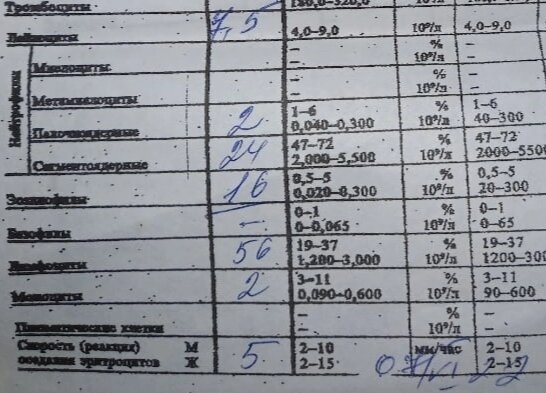 Тромбоциты 180,0–320,0 10⁹/л
Лейкоциты 7,5 4,0–9,0 10⁹/л 4,0–9,0
Нейтрофилы
Миелоциты – % –
– 10⁹/л –
Метамиелоциты – % –
– 10⁹/л –
Палочкоядерные 2 1–6 % 1–6
0,040–0,300 10⁹/л 40–300
Сегментоядерные 24 47–72 % 47–72
2,000–5,500 10⁹/л 2000–5500
Эозинофилы 16 0,5–5 % 0,5–5
0,020–0,300 10⁹/л 20–300
Базофилы – 0–1 % 0–1
0–0,065 10⁹/л 0–65
Лимфоциты 56 19–37 % 19–37
1,200–3,000 10⁹/л 1200–300
Моноциты 2 3–11 % 3–11
0,090–0,600 10⁹/л 90–600
Плазматические клетки – % –
– 10⁹/л –
Скорость (реакция) М 5 2–10 мм/час 2–10
оседания эритроцитов Ж 2–15 2–15